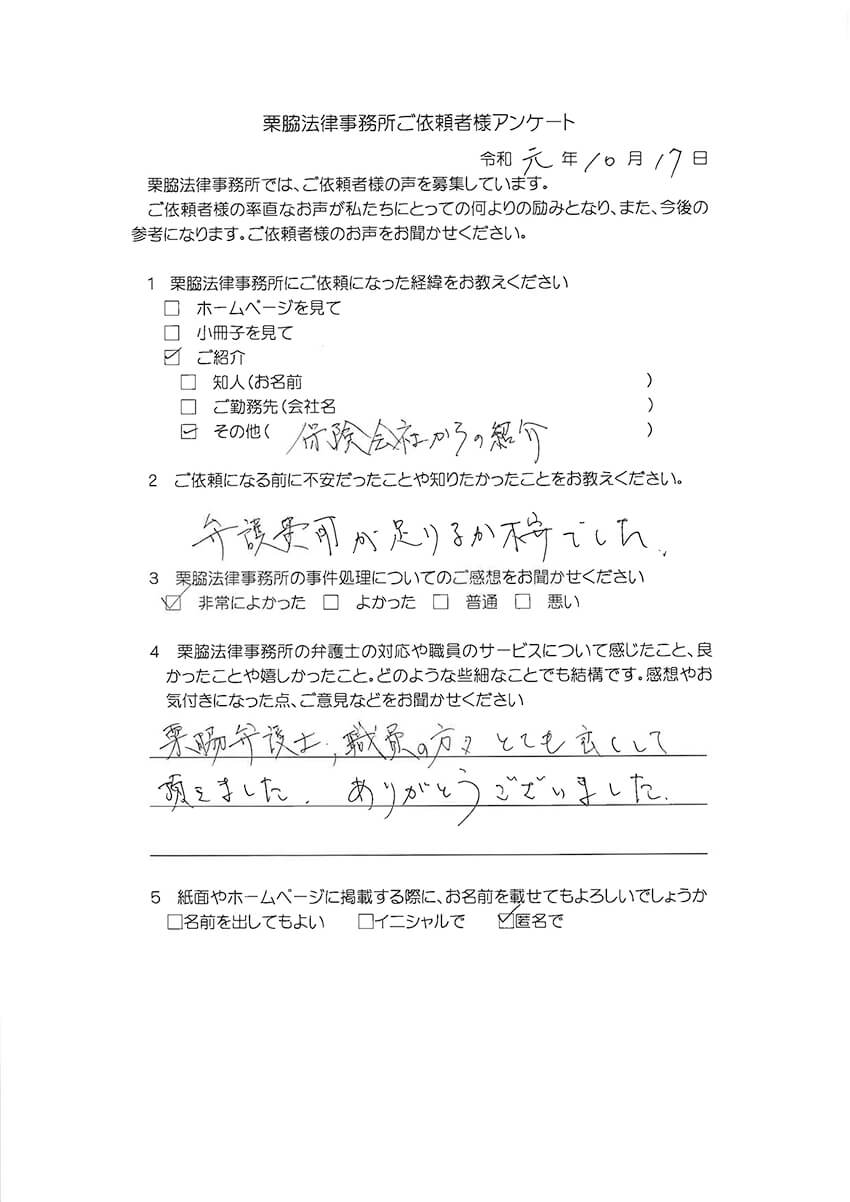 栗脇法律事務所ご依頼者様アンケート
令和 元 年 10 月 17 日
栗脇法律事務所では、ご依頼者様の声を募集しています。
ご依頼者様の率直なお声が私たちにとっての何よりの励みとなり、また、今後の
参考になります。ご依頼者様のお声をお聞かせください。
1 栗脇法律事務所にご依頼になった経緯をお教えください
□ ホームページを見て
□ 小冊子を見て
☑ ご紹介
□ 知人(お名前 )
□ ご勤務先(会社名 )
☑ その他( 保険会社からの紹介 )
2 ご依頼になる前に不安だったことや知りたかったことをお教えください。
弁護費用が足りるか不安でした。
3 栗脇法律事務所の事件処理についてのご感想をお聞かせください
☑ 非常によかった □ よかった □ 普通 □ 悪い
4 栗脇法律事務所の弁護士の対応や職員のサービスについて感じたこと、良
かったことや嬉しかったこと。どのような些細なことでも結構です。感想やお
気付きになった点、ご意見などをお聞かせください
栗脇弁護士、職員の方々とても良くして
頂きました。ありがとうございました。
5 紙面やホームページに掲載する際に、お名前を載せてもよろしいでしょうか
□名前を出してもよい □イニシャルで ☑匿名で